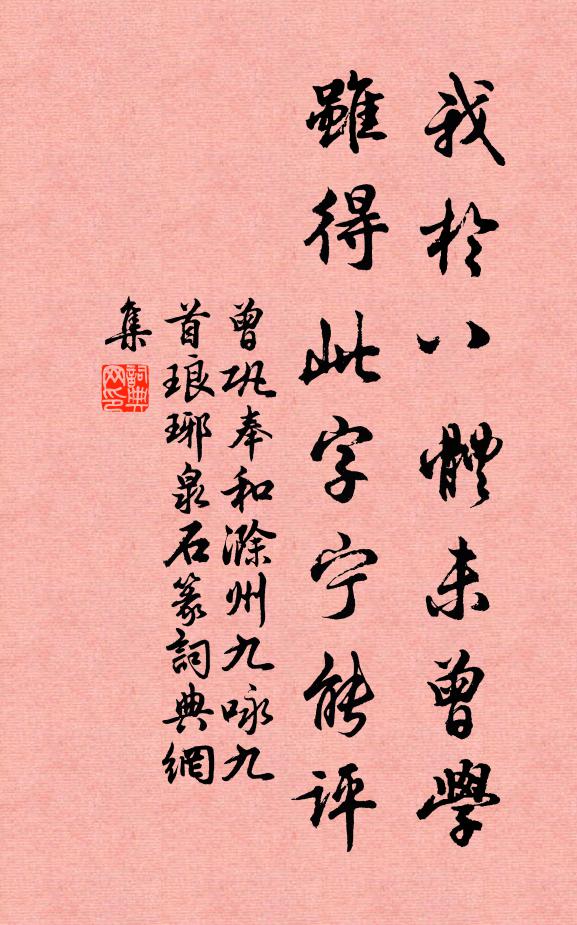 我於八體未曾學
雖得此字宁能評
曾巩奉和滁州九咏九
首琅琊泉石篆詞典網
集
詞典網印